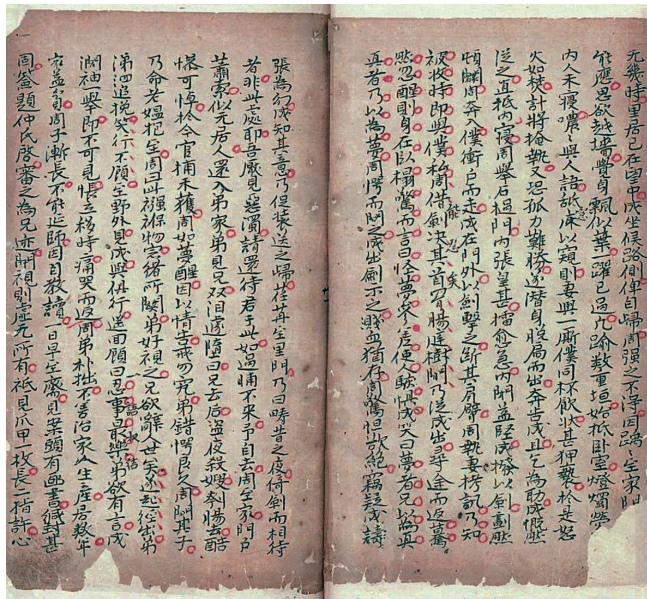 无幾時里居已在目中成坐候路側俾自歸周强之不得因踽〻至家門
能應思欲越墻覺身飄似葉一躍已過凡踰數重垣始抵卧室燈燭熒
內人未寢噥〻與人語舐窓以窺則妻與一廝僕同杯飲狀其狎褻於是怒
火如焚計將掩執又恐孤力難勝遂潛身脫扃而出奔告成且乞為助成慨然
從之直抵內寢周舉石撾門內張皇甚擂愈急內閉益堅成撥以劍劃然
頓闢周奔入僕衝户而走成在門外以劍擊之斷其肩臂周執妻拷訊乃知
被收時即與僕私周借劍决其首罥腸庭樹間乃從成出尋途而返驀
然忽醒則身在臥榻驚而言曰怪夢參差使人駭惧成笑曰夢者兄以為真
真者乃以為夢周愕而問之成出劍示之濺血猶存周驚怛欲絕竊疑成譸
張為幻成知其意乃促裝送之歸荏苒至里門乃曰疇昔之夜倚劍而相待
者非此處耶吾厭見惡濁請還待君于此如過晡不來予自去周至家門户
蕭索似无居人還入弟家弟見兄双泪遽墮曰兄去后盗夜殺嫂刳腸去酷
慘可悼於今官捕未獲周如夢醒因以情告戒勿究弟錯愕良久周問其子
乃命老媼抱至周曰此襁保物宗緒所関弟好視之兄欲辭人世矣遂起徑出弟
涕泗追挽笑行不顧至野外見成與俱行遥回顧曰忍事最樂弟欲有言成
闊袖一舉即不可見悵立移時痛哭而返周弟朴拙不善治家人生產居數年
家益貧周子漸長不能延師因自教讀一日早至齋見案頭有函書緘封甚
固簽題仲氏啓審之為兄迹開視則虛无所有祇見爪甲一枚長二指許心